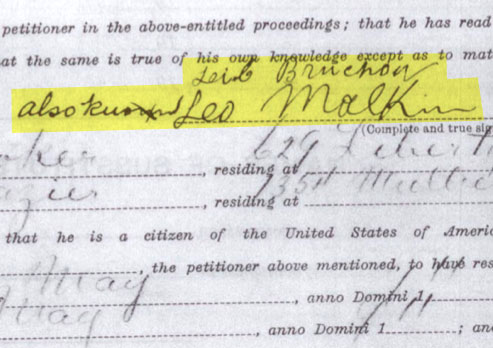 petitioner in the above-entitled proceedings; that he has read
at the same is true of his own knowledge except as to mat
Leib Bruchow
also known Leo Malkin
(Complete and true sig
oker 629 Libert
, residing at
azier 1354
, residing at
that he is a citizen of the United States of Americ
May , the petitioner above mentioned, to have res
May , anno Domini 1
, anno Domini 1 ; and